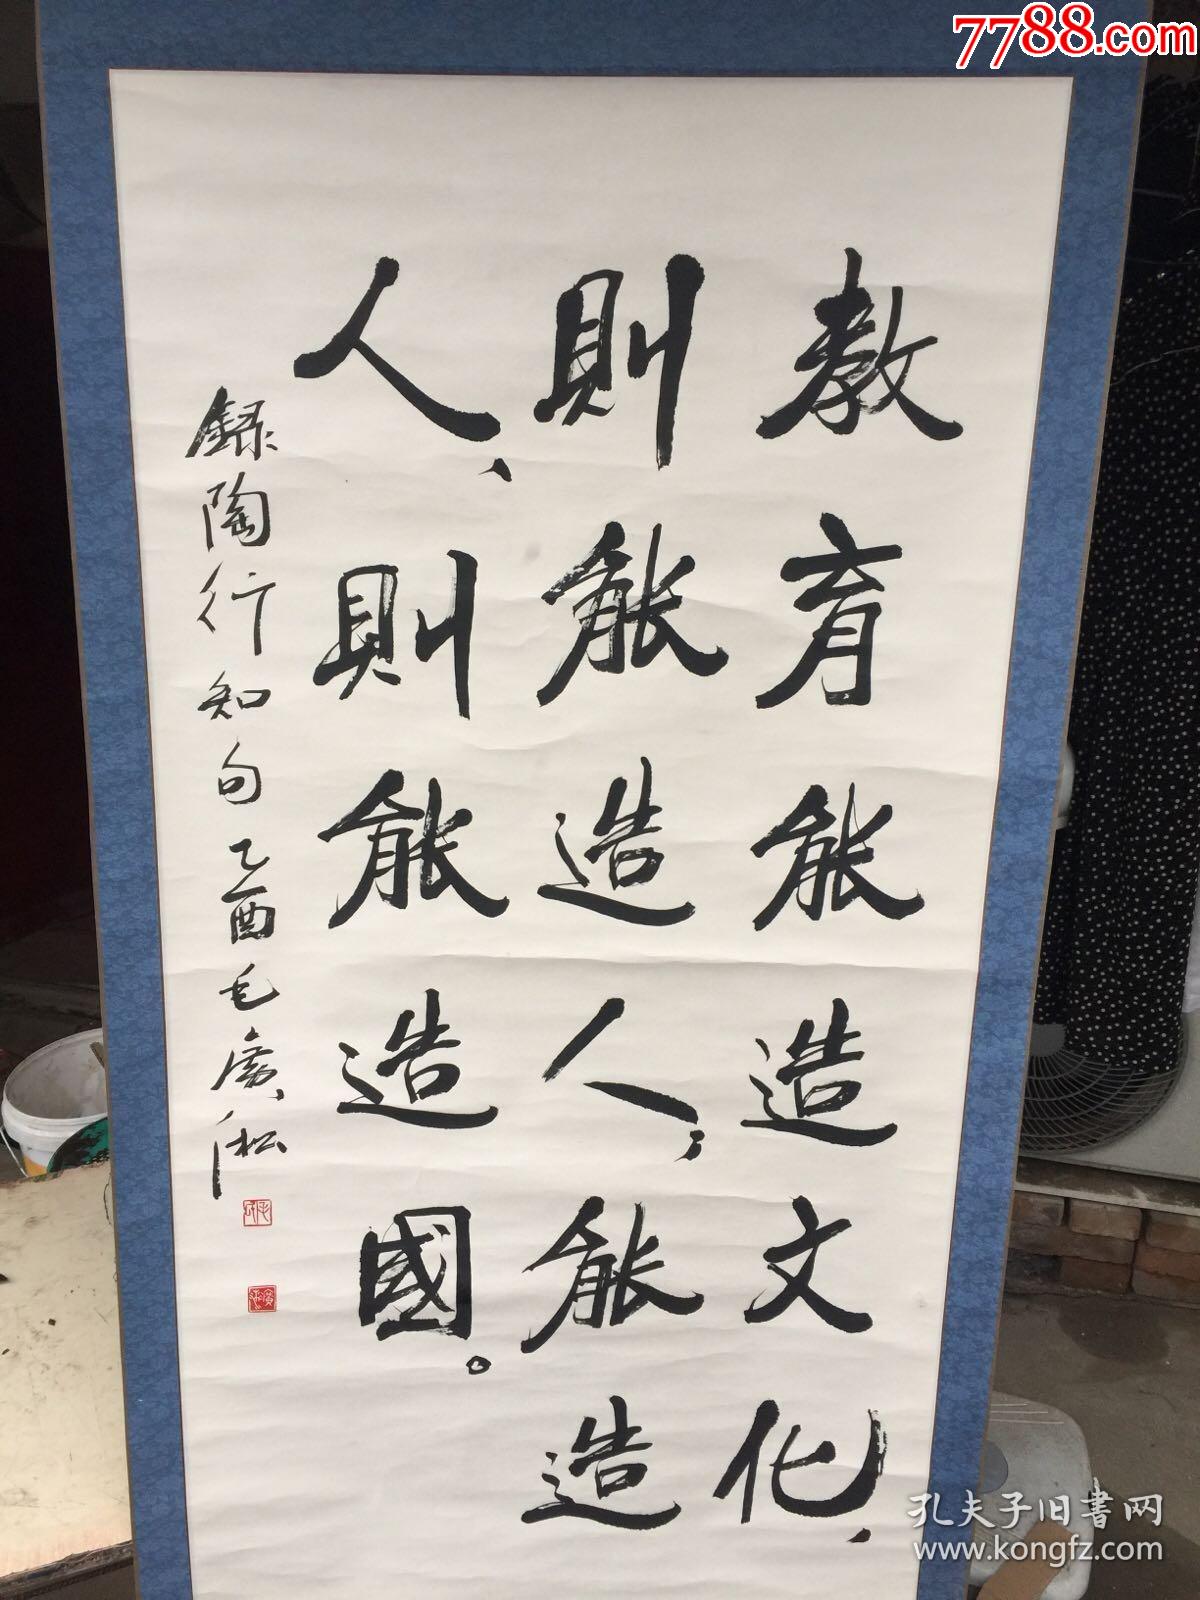 7788.com
教育能造文化、
則能造人，能造
人、則能造國。
錄陶行知句乙酉毛廣淞
孔夫子旧書网
www.kongfz.com